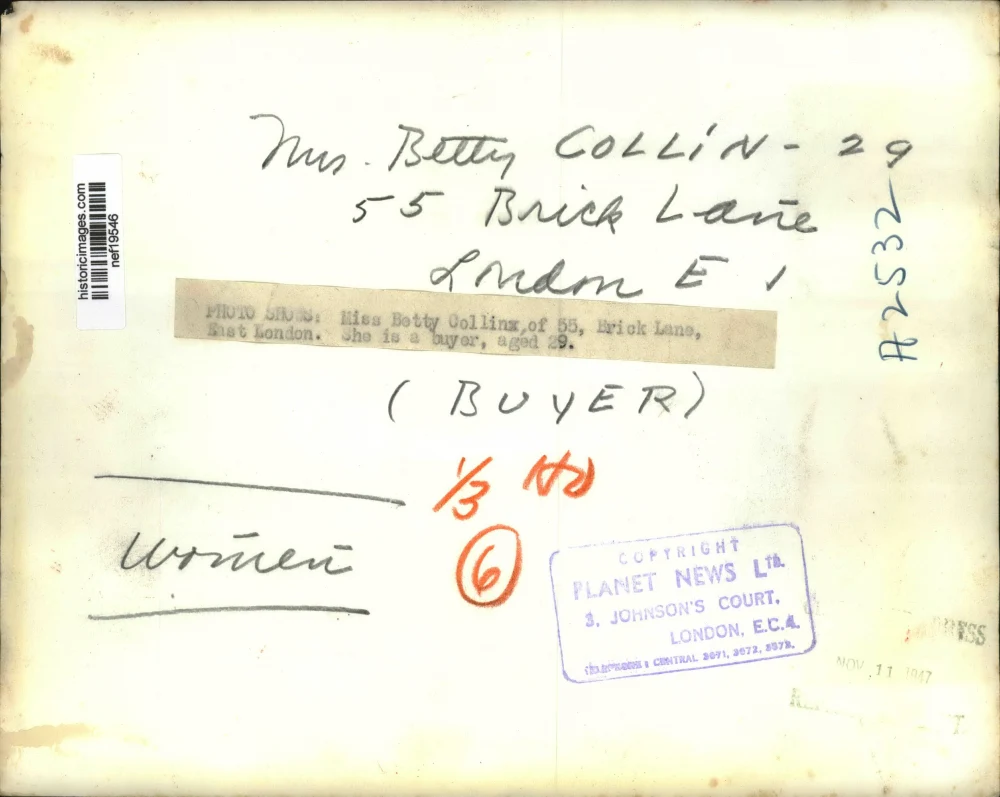 Mrs. Betty COLLiN - 29
55 Brick Lane
London E 1
A2532
historicimages.com
nef19546
PHOTO SHOWS: Miss Betty Collinx,of 55, Brick Lane,
East London. She is a buyer, aged 29.
(BUYER)
1/3
6
Women
COPYRIGHT
PLANET NEWS LTD.
3, JOHNSON'S COURT,
LONDON, E.C.4.
CENTRAL
NOV 11 1947